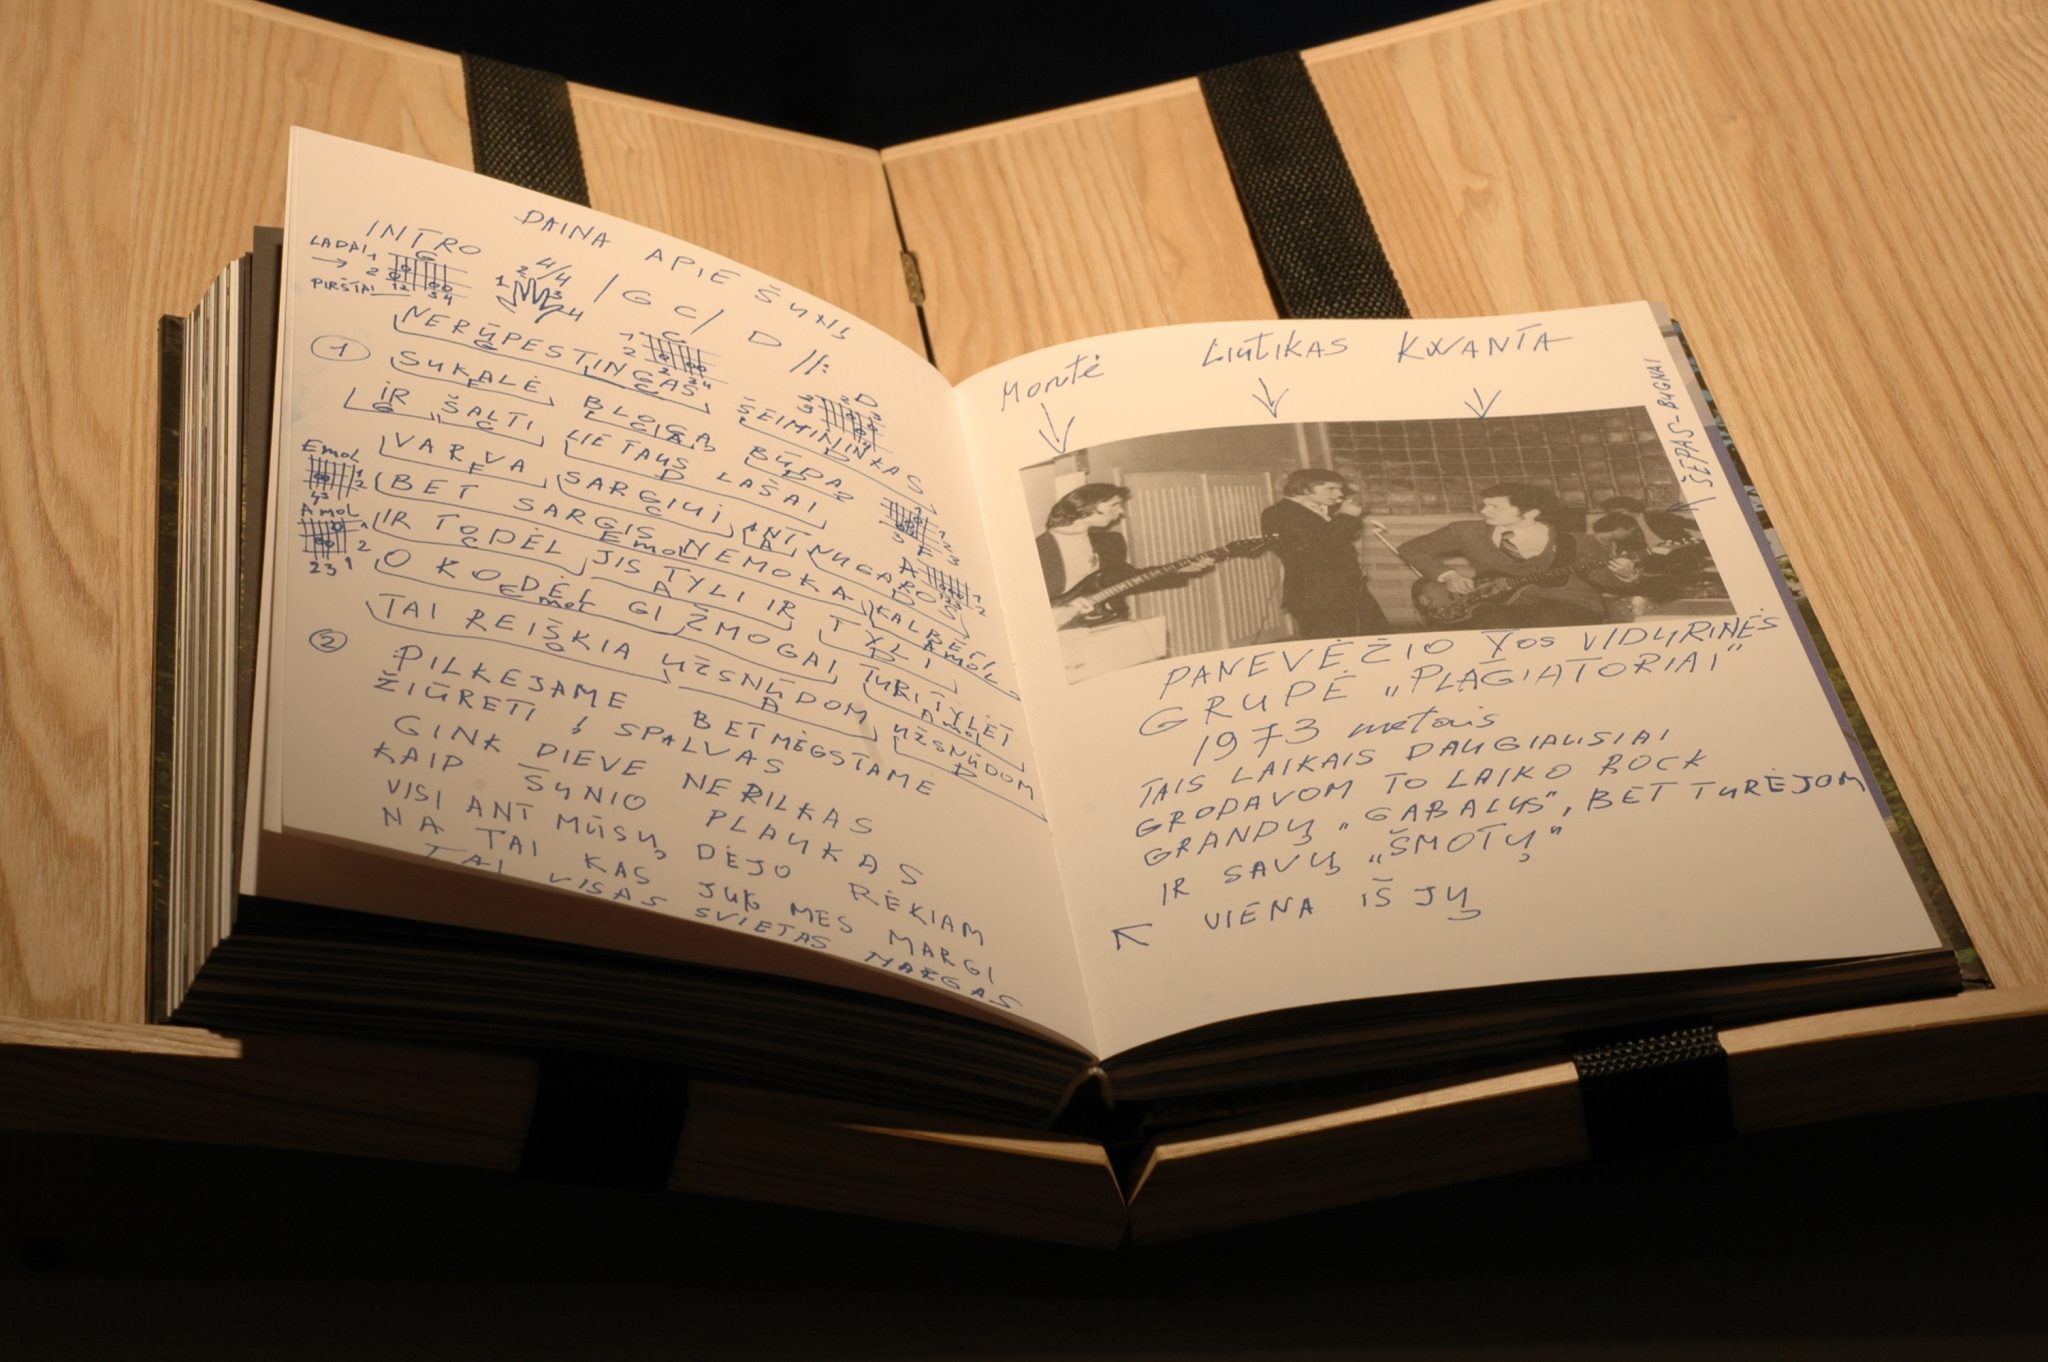 DAINA APIE ŠUNĮ
INTRO
4/4 / G C / D //:
LADAI 1 2
PIRŠTAI 12 34
G
1 2 3 4
C
D
① NERŪPESTINGAS ŠEIMININKAS
G C D
SUKALĖ BLOGĄ BŪDĄ
IR ŠALTI LIETAUS LAŠAI
G C D
VARVA SARGIUI ANT NUGAROS
BET SARGIS NEMOKA KALBĖTI
Emol Amol
IR TODĖL JIS TYLI IR TYLI
C A D
O KODĖL GI ŽMOGAI TURI TYLĖT
Emol Amol
TAI REIŠKIA UŽSNŪDOM UŽSNŪDOM
D A D
Emol
Amol
231
② PILKĖJAME BET MĖGSTAME
ŽIŪRĖTI Į SPALVAS
GINK DIEVE NEPILKAS
KAIP ŠUNIO PLAUKAS
VISI ANT MŪSŲ DĖJO RĖKIAM
NA TAI KAS JUK MES MARGI
TAI VISAS SVIETAS MARGAS
Liutikas KWANTA
ŠĖPAS-BŪGNAI
PANEVĖŽIO Vos VIDURINĖS
GRUPĖ „PLAGIATORIAI"
1973 metais
TAIS LAIKAIS DAUGIAUSIAI
GRODAVOM TO LAIKO ROCK
GRANDŲ „GABALUS", BET TURĖJOM
IR SAVŲ „ŠMOTŲ"
VIENA IŠ JŲ